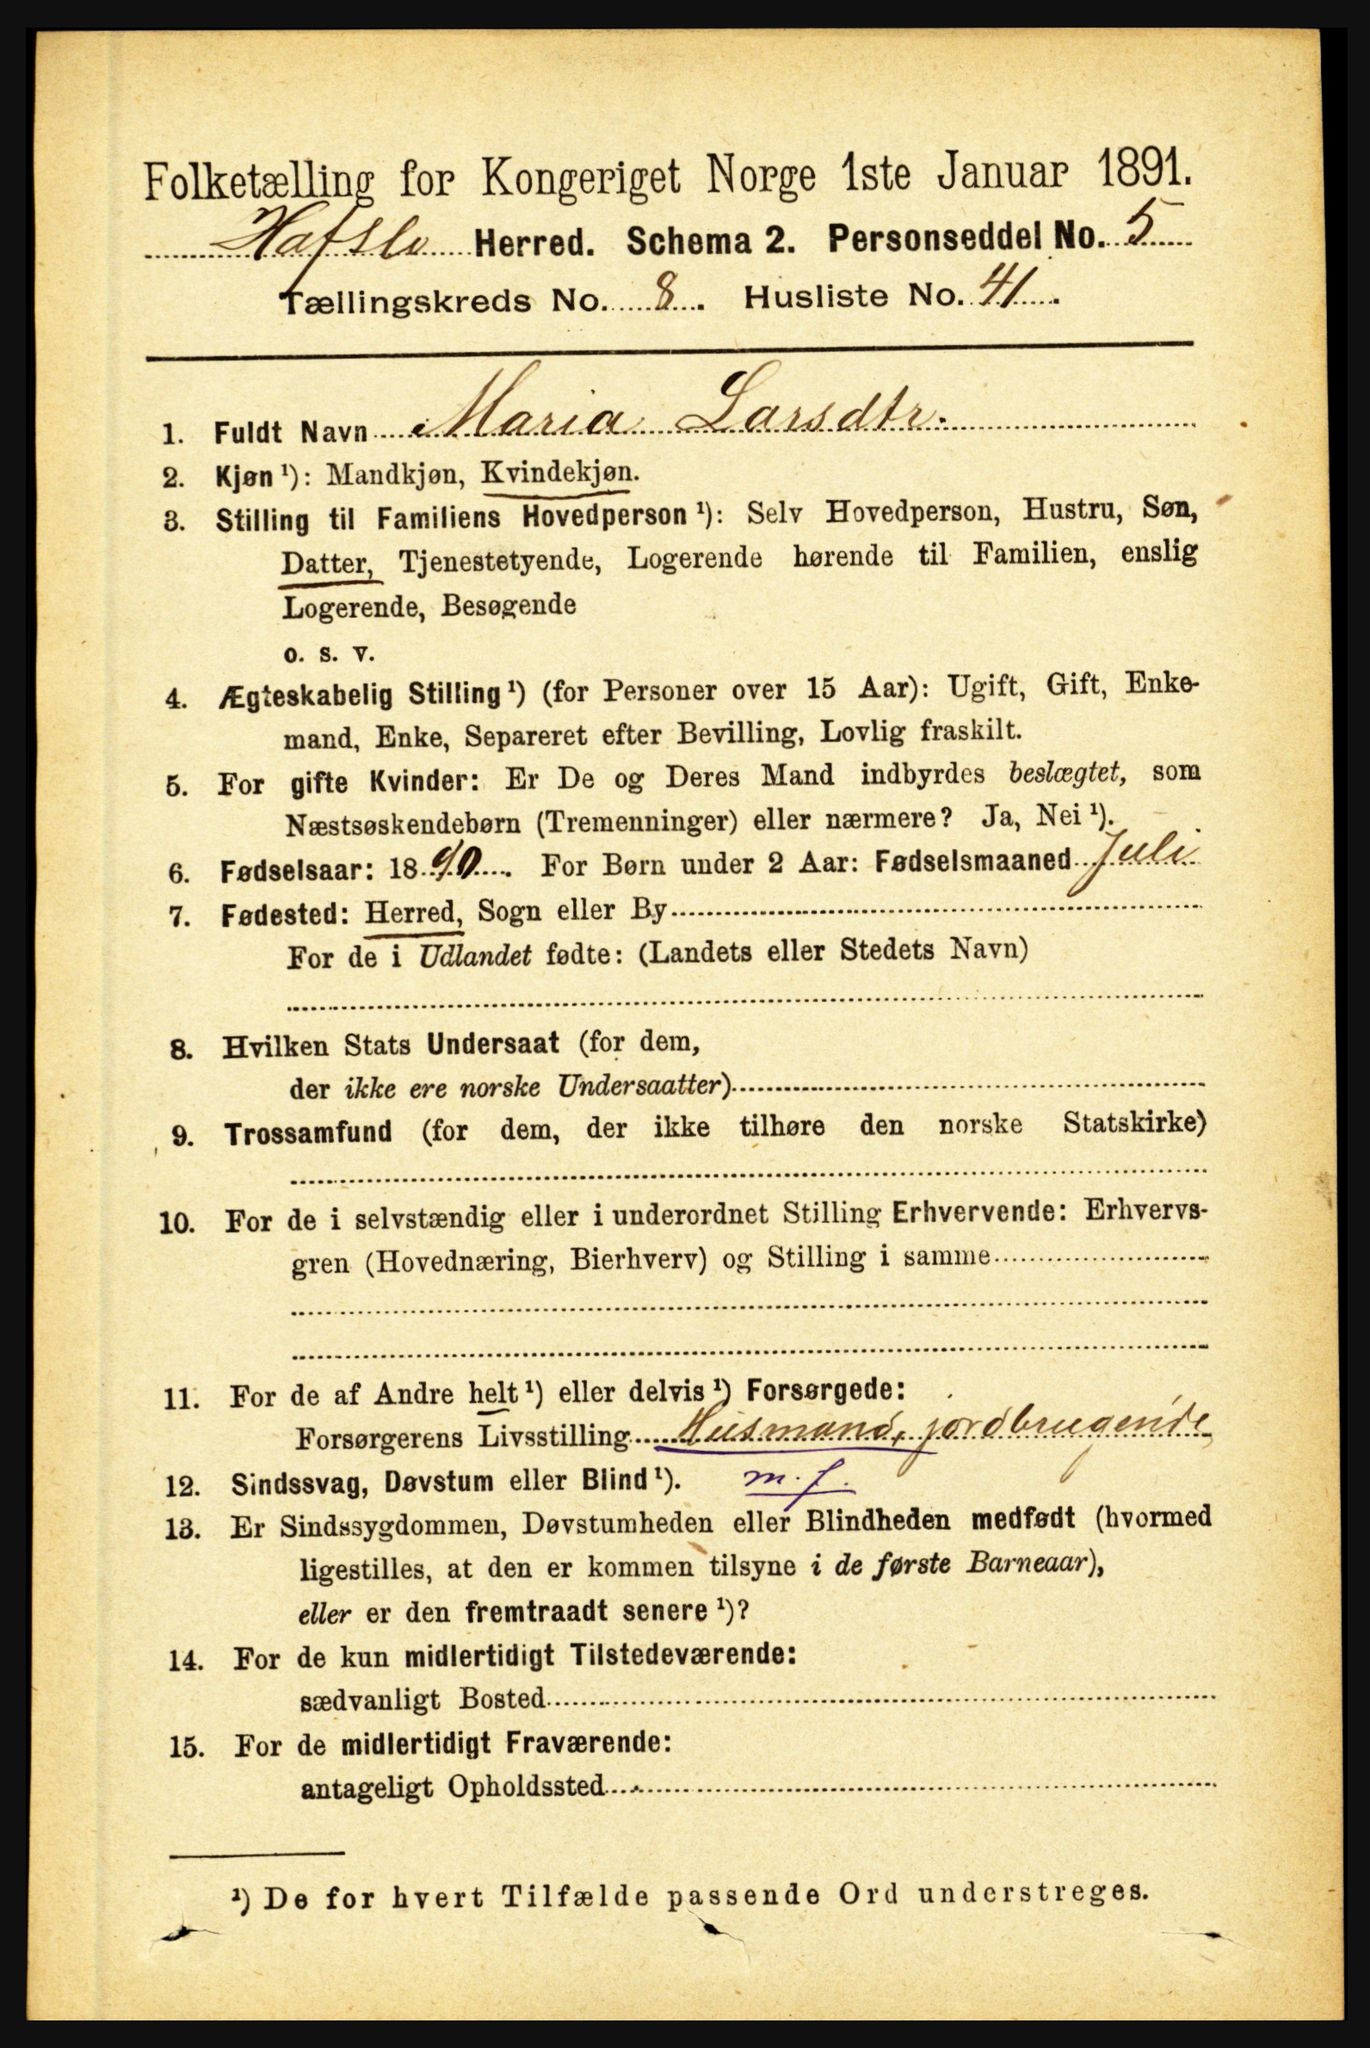 Folketælling for Kongeriget Norge 1ste Januar 1891.
Hafslo Herred. Schema 2. Personseddel No. 5
Tællingskreds No. 8. Husliste No. 41.
1. Fuldt Navn Maria Larsdtr.
2. Kjøn ¹): Mandkjøn, Kvindekjøn.
3. Stilling til Familiens Hovedperson ¹): Selv Hovedperson, Hustru, Søn,
Datter, Tjenestetyende, Logerende hørende til Familien, enslig
Logerende, Besøgende
o. s. v.
4. Ægteskabelig Stilling ¹) (for Personer over 15 Aar): Ugift, Gift, Enke-
mand, Enke, Separeret efter Bevilling, Lovlig fraskilt.
5. For gifte Kvinder: Er De og Deres Mand indbyrdes beslægtet, som
Næstsøskendebørn (Tremenninger) eller nærmere? Ja, Nei ¹).
6. Fødselsaar: 1890. For Børn under 2 Aar: Fødselsmaaned Juli
7. Fødested: Herred, Sogn eller By
For de i Udlandet fødte: (Landets eller Stedets Navn)
8. Hvilken Stats Undersaat (for dem,
der ikke ere norske Undersaatter)
9. Trossamfund (for dem, der ikke tilhøre den norske Statskirke)
10. For de i selvstændig eller i underordnet Stilling Erhvervende: Erhvervs-
gren (Hovednæring, Bierhverv) og Stilling i samme
11. For de af Andre helt ¹) eller delvis ¹) Forsørgede:
Forsørgerens Livsstilling Husmand, jordbrugende
12. Sindssvag, Døvstum eller Blind ¹). m. j.
13. Er Sindssygdommen, Døvstumheden eller Blindheden medfødt (hvormed
ligestilles, at den er kommen tilsyne i de første Barneaar),
eller er den fremtraadt senere ¹)?
14. For de kun midlertidigt Tilstedeværende:
sædvanligt Bosted
15. For de midlertidigt Fraværende:
antageligt Opholdssted
¹) De for hvert Tilfælde passende Ord understreges.